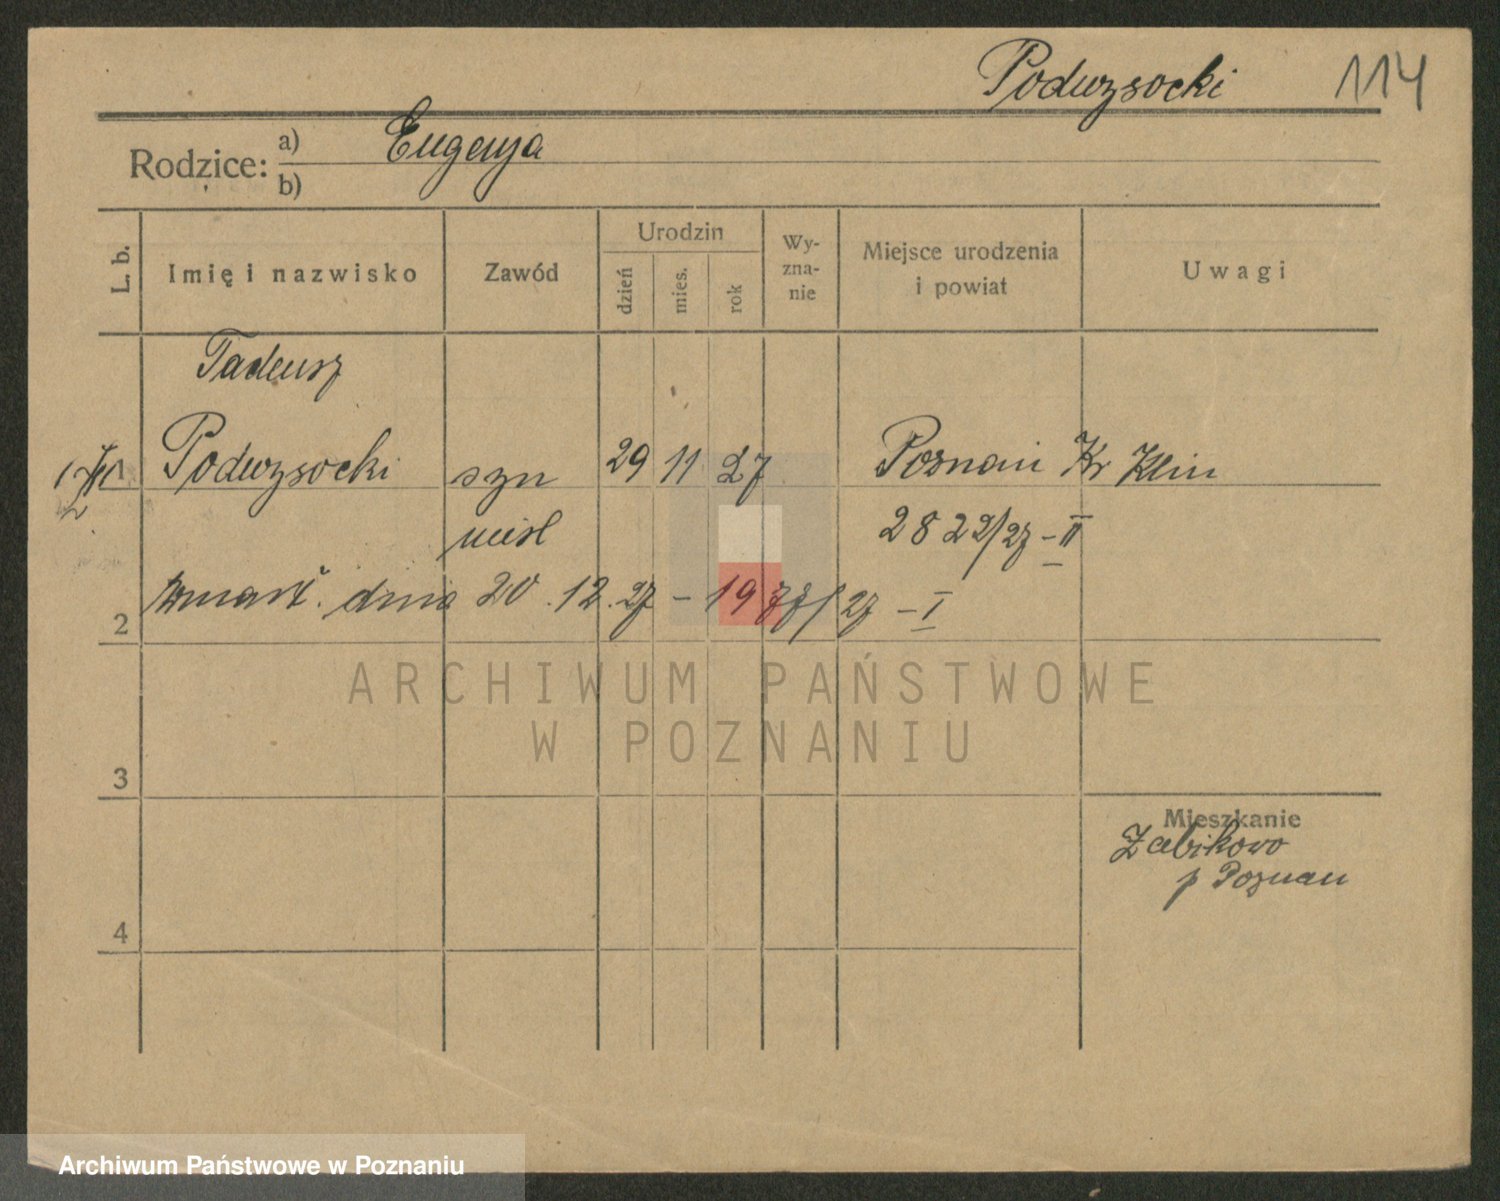 Podwysocki 114
Rodzice: a) Eugenja
b)
L. b. Imię i nazwisko Zawód Urodzin dzień mies. rok Wy-zna-nie Miejsce urodzenia i powiat Uwagi
Tadeusz
1 Podwysocki syn 29 11 27 Poznań Kr Klin
nieśl 2822/27-II
zmarł. dnia 20.12.27 - 1977/27 - I
2
ARCHIWUM PAŃSTWOWE
W POZNANIU
3
Mieszkanie
Żabikowo
p Poznań
4
Archiwum Państwowe w Poznaniu